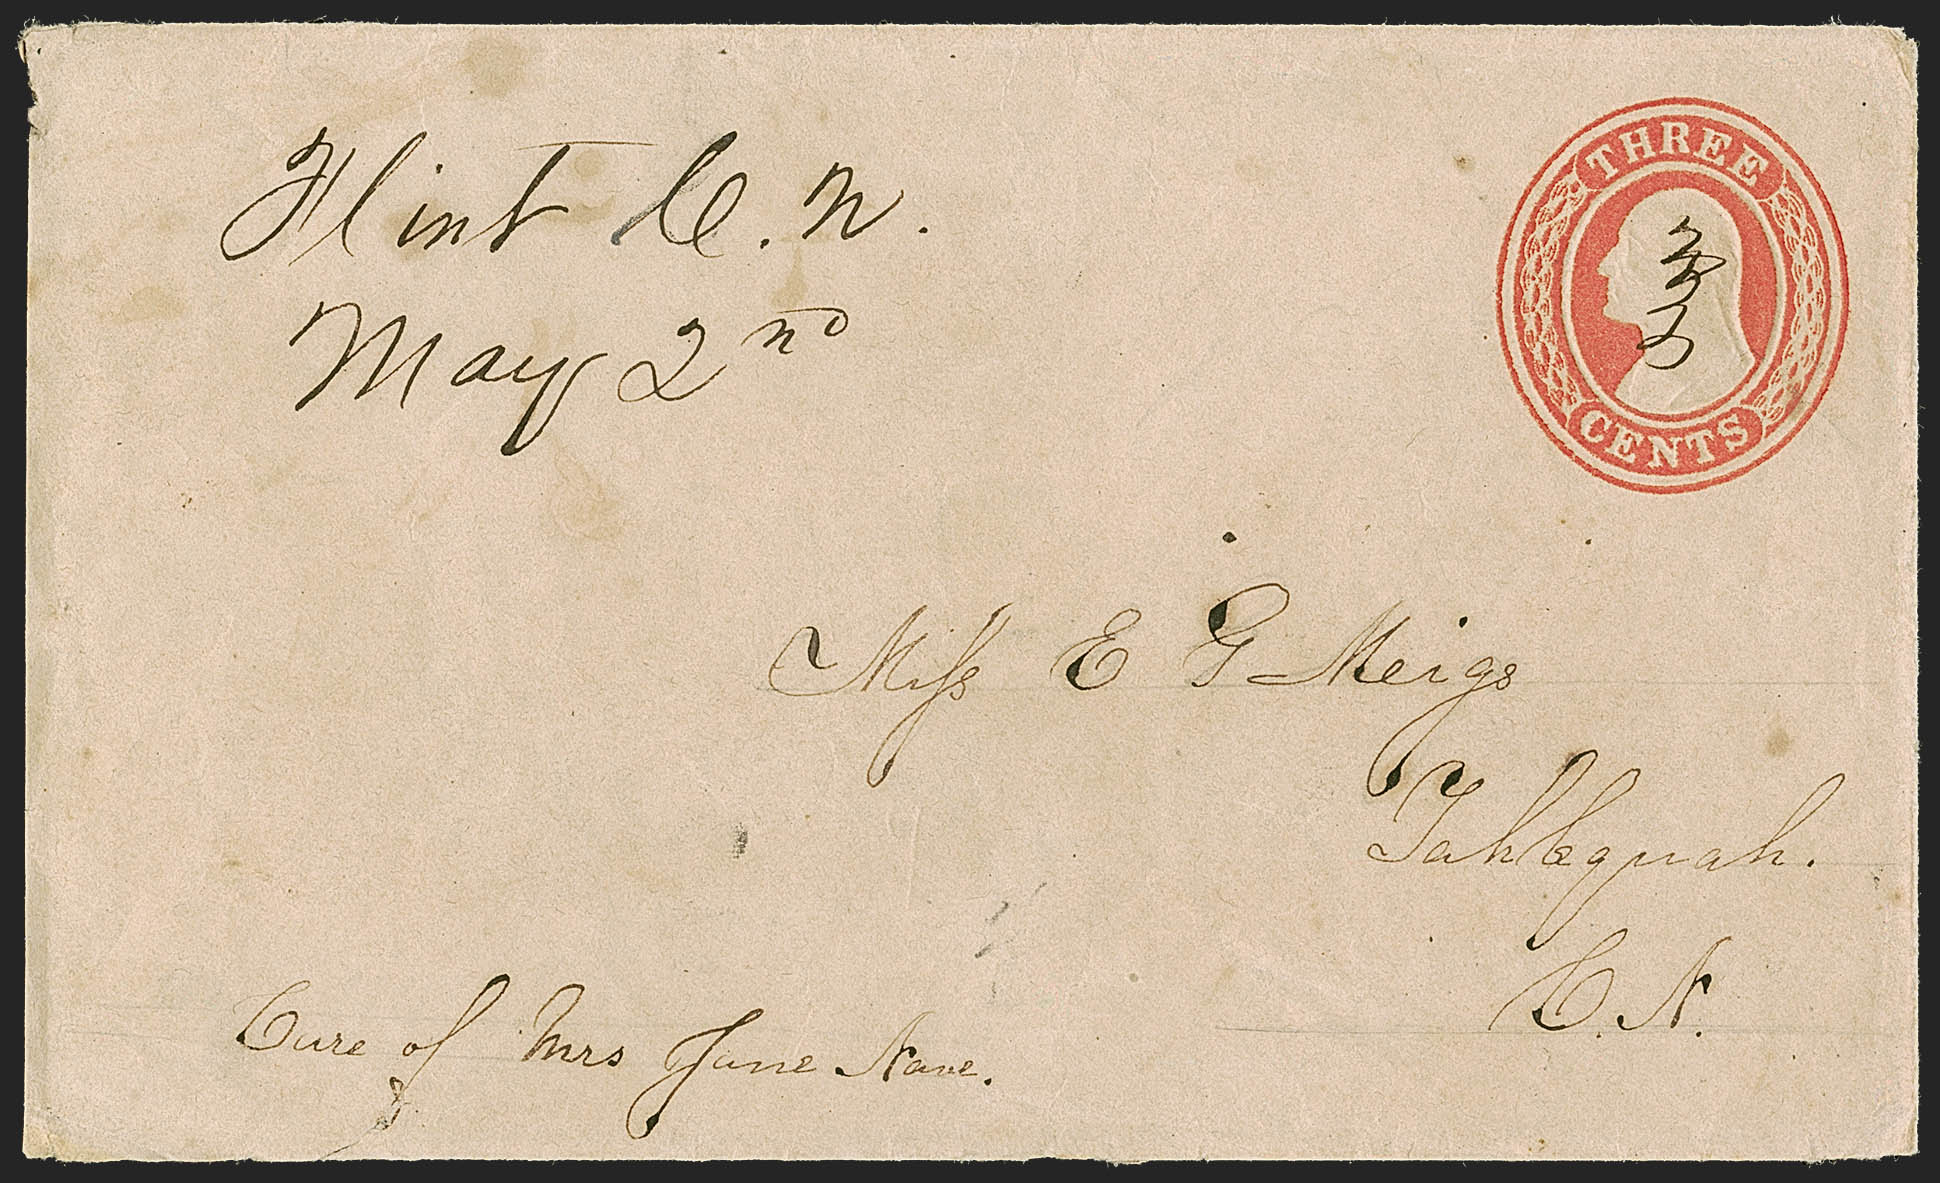 Flint C. N.
May 2nd
THREE
CENTS
Miss E G Meigs
Tahlequah.
C. N.
Care of Mrs Jane Nave.